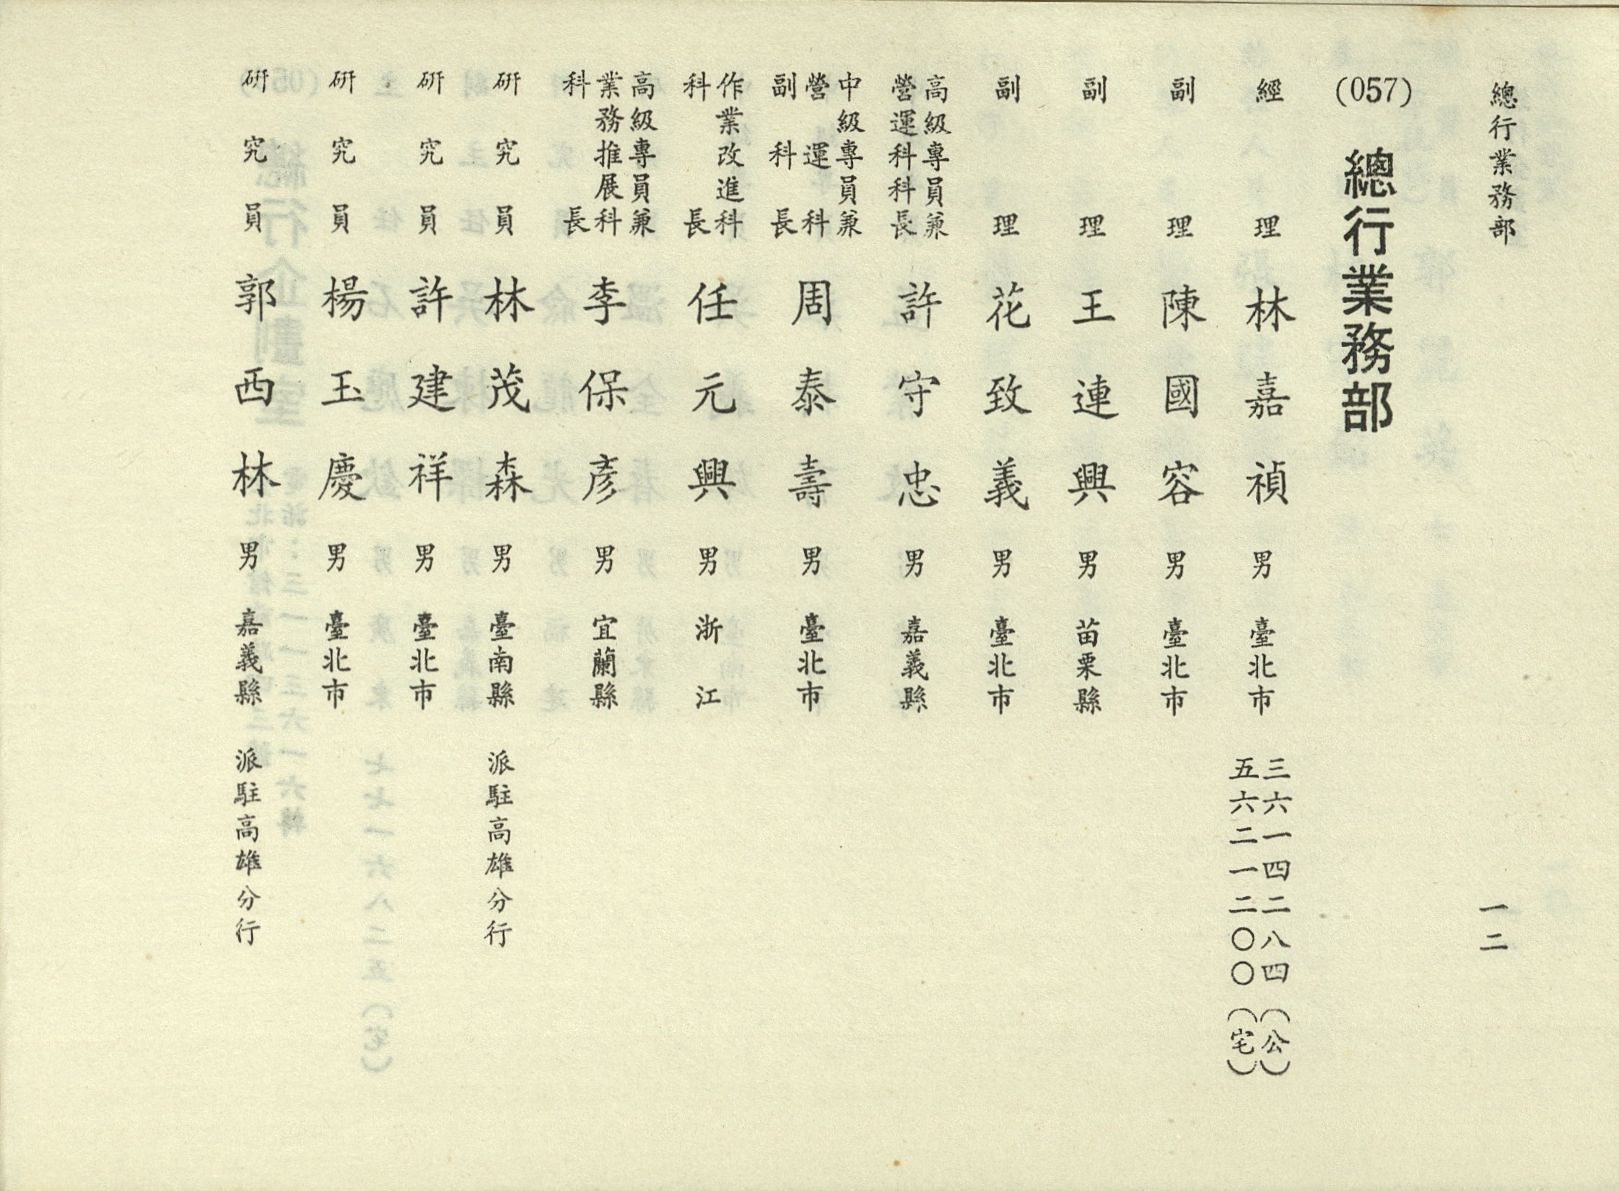 總行業務部
一二
(057) 總行業務部
經理 林嘉禎 男 臺北市 三六一四二八四(公)
五六二一二〇〇(宅)
副理 陳國容 男 臺北市
副理 王連興 男 苗栗縣
副理 花致義 男 臺北市
高級專員兼
營運科科長 許守忠 男 嘉義縣
中級專員兼
營運科
副科長 周泰壽 男 臺北市
作業改進科
科長 任元興 男 浙江
高級專員兼
業務推展科
科長 李保彥 男 宜蘭縣
研究員 林茂森 男 臺南縣 派駐高雄分行
研究員 許建祥 男 臺北市
研究員 楊玉慶 男 臺北市
研究員 郭西林 男 嘉義縣 派駐高雄分行